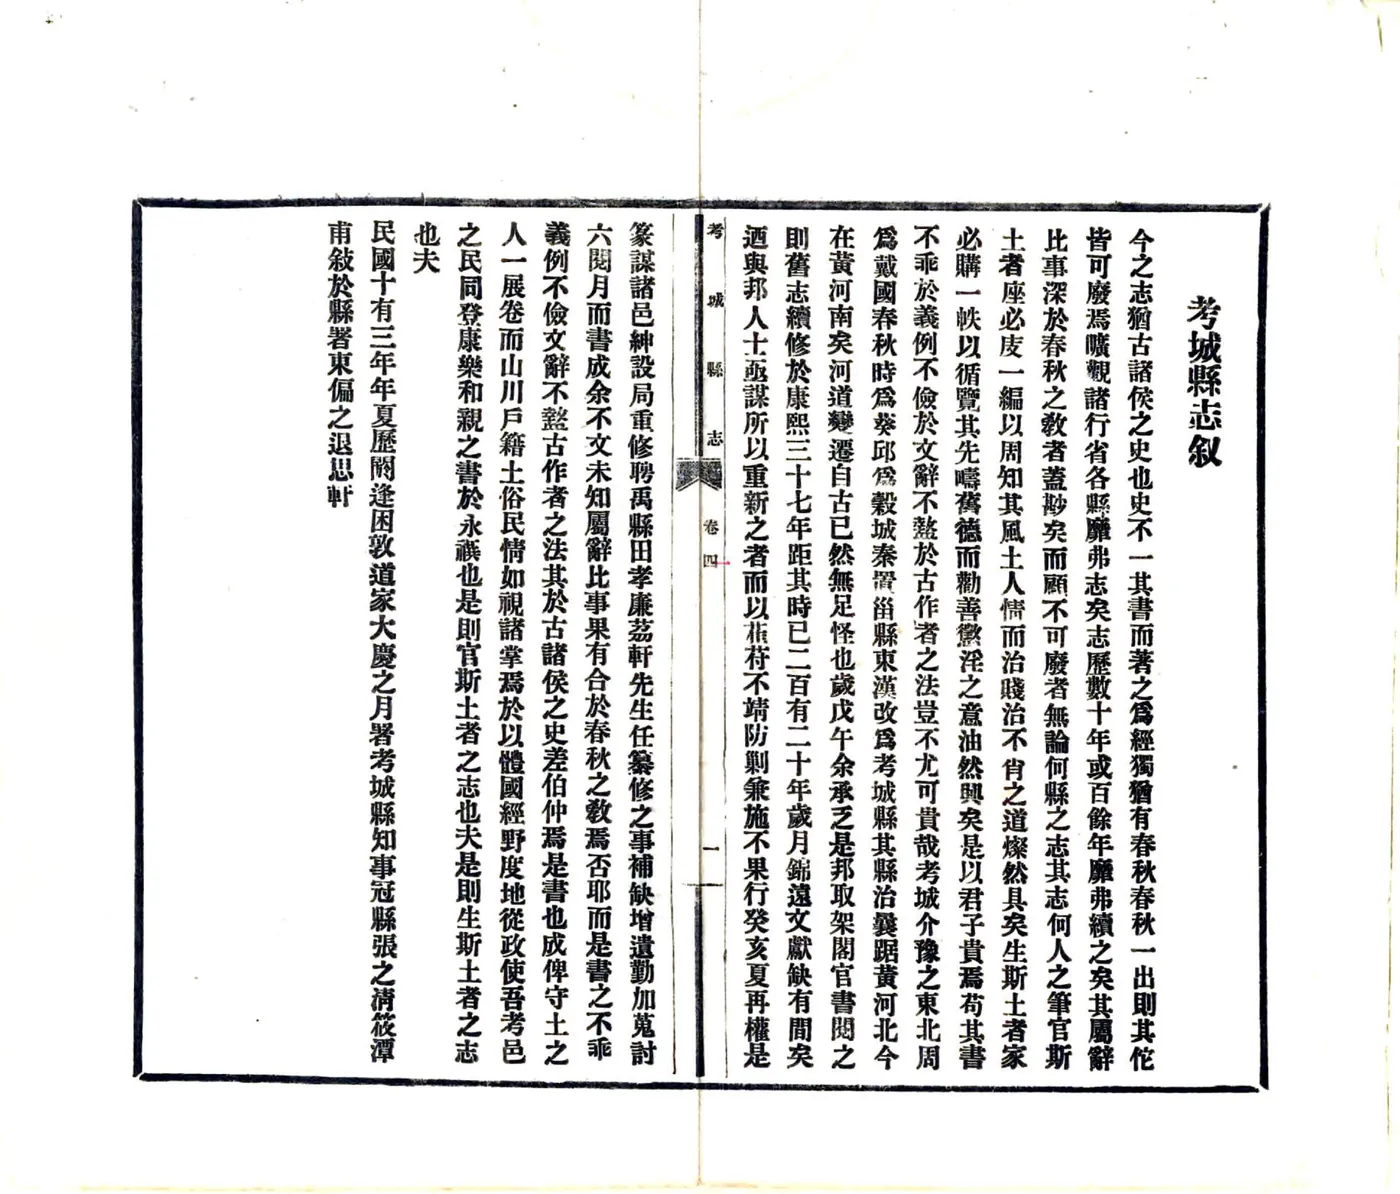 考城縣志叙
今之志猶古諸侯之史也史不一其書而著之爲經獨猶有春秋春秋一出則其佗
皆可廢焉曠觀諸行省各縣靡弗志矣志歷數十年或百餘年靡弗續之矣其屬辭
比事深於春秋之敎者蓋尟矣而顧不可廢者無論何縣之志其志何人之筆官斯
土者座必庋一編以周知其風土人情而治賤治不肖之道燦然具矣生斯土者家
必購一帙以循覽其先疇舊德而勸善懲淫之意油然興矣是以君子貴焉苟其書
不乖於義例不儉於文辭不盭於古作者之法豈不尤可貴哉考城介豫之東北周
爲戴國春秋時爲葵邱爲穀城秦置甾縣東漢改爲考城縣其縣治曩踞黃河北今
在黃河南矣河道變遷自古已然無足怪也歲戊午余承乏是邦取架閣官書閱之
則舊志續修於康熙三十七年距其時已二百有二十年歲月錦遠文獻缺有間矣
迺與邦人士亟謀所以重新之者而以萑苻不靖防剿兼施不果行癸亥夏再權是
考城縣志
卷四
一
篆謀諸邑紳設局重修聘禹縣田孝廉荔軒先生任纂修之事補缺增遺勤加蒐討
六閱月而書成余不文未知屬辭比事果有合於春秋之敎焉否耶而是書之不乖
義例不儉文辭不盭古作者之法其於古諸侯之史差伯仲焉是書也成俾守土之
人一展卷而山川戶籍土俗民情如視諸掌焉於以體國經野度地從政使吾考邑
之民同登康樂和親之書於永禩也是則官斯土者之志也夫是則生斯土者之志
也夫
民國十有三年年夏歷閼逢困敦道家大慶之月署考城縣知事冠縣張之清筱潭
甫敍於縣署東偏之退思軒